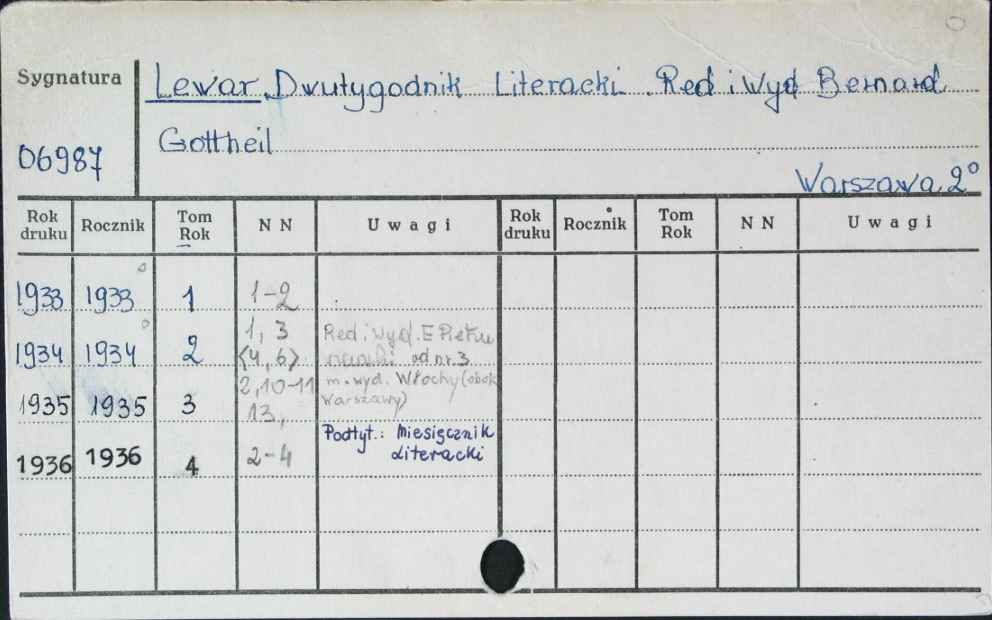 Sygnatura
Lewar. Dwutygodnik Literacki. Red i Wyd Bernard
Gottheil
06987
Warszawa 2°
Rok druku Rocznik Tom Rok N N Uwagi Rok druku Rocznik Tom Rok N N Uwagi
1933 1933 1 1-2
1934 1934 2 1, 3 Red. i wyd. E
<4, 6> od nr. 3
1935 1935 3 2, 10-11 m. wyd. Włochy (obok
13, Warszawy)
1936 1936 4 2-4 Podtyt.: Miesięcznik
Literacki